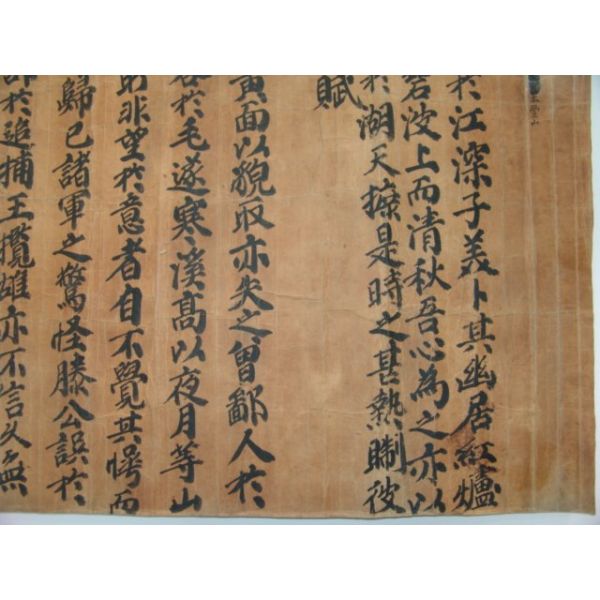 玉堂山
於江深子美卜其幽居紅爐
波上而清秋吾心為之亦以
於湖天掠是時之甚熱彼
賦
面以貌取亦失之曾鄙人於
於毛遂寒溪高以夜月等山
非望於意者自不覺其愕而
歸已諸軍之驚怪滕公誤於
於追捕王攬雄亦不信久無